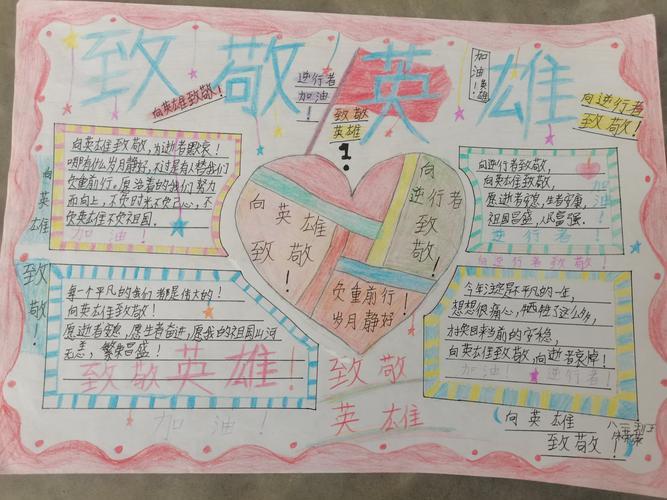 致敬英雄
向英雄致敬！
逆行者
加油！
致敬
英雄
！
加油！英雄
向逆行者
致敬！
向英雄致敬，为逝者默哀！
哪有什么岁月静好，不过是有人替我们
负重前行，愿活着的我们努力
而向上，不负时光不负己心，不
负英雄不负祖国。
加油！
向英雄
致敬！
向英雄
致敬！
向
逆行者
致敬！
负重前行！
岁月静好！
向逆行者致敬，
向英雄致敬，
愿逝者安息，生者安康，
祖国昌盛，人民富强。
逆行者！
加油！
向逆行者致敬！
每一个平凡的我们都是伟大的！
向英雄致敬！
愿逝者安息，愿生者奋进，愿我的祖国山河
无恙，繁荣昌盛！
致敬英雄！
加油！
致敬
英雄
今年注定是不平凡的一年，
想想很痛心，牺牲了这么多，
才换回来当前的安稳，
向英雄致敬，向逝者哀悼！
加油！逆行者！
向英雄
致敬！